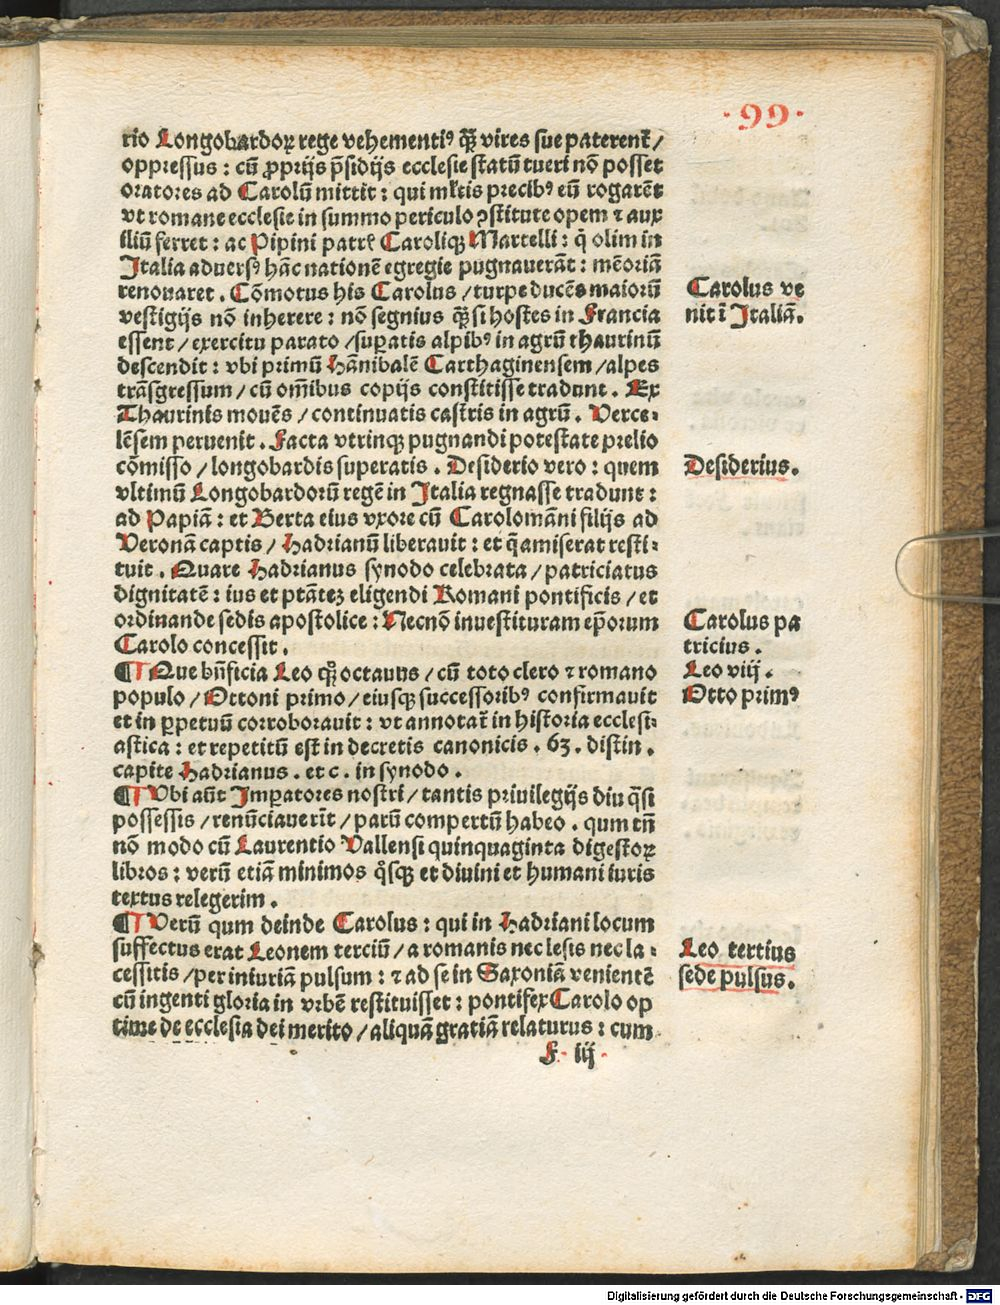 ·99·
rio Longobardoꝝ rege vehementiꝰ qꝫ̈ vires sue paterent᷑/
oppressus : cū ꝓprijs p̄sidijs ecclesie statū tueri nō posset
oratores ad Carolū mittit : qui ml̓tis precibꝰ eū rogarēt
vt romane ecclesie in summo periculo ꝯstitute opem ⁊ aux
iliū ferret : ac Pipini patrꝭ Caroliqꝫ Martelli : q̄ olim in
Italia aduersꝰ hāc nationē egregie pugnauerāt : mēoriā
renouaret . Cōmotus his Carolus / turpe ducēs maiorū
vestigijs nō inherere : nō segnius qꝫ̈ si hostes in Francia
essent / exercitu parato / suꝑatis alpibꝰ in agrū thaurinū
descendit : vbi primū Hānibalē Carthaginensem / alpes
trāsgressum / cū om̄ibus copijs constitisse tradunt . Ex
Thaurinis mouēs / continuatis castris in agrū . Verce-
lēsem peruenit . Facta vtrinqꝫ pugnandi potestate prelio
cōmisso / longobardis superatis . Desiderio vero : quem
vltimū Longobardorū regē in Italia regnasse tradunt :
ad Papiā : et Berta eius vxore cū Carolomāni filijs ad
Veronā captis / Hadrianū liberauit : et q̄ amiserat resti-
tuit . Quare Hadrianus synodo celebrata / patriciatus
dignitatē : ius et ptātēꝫ eligendi Romani pontificis / et
ordinande sedis apostolice : Necnō inuestituram ep̄orum
Carolo concessit .
¶ Que bn̄ficia Leo qꝫ̈ octauus / cū toto clero ⁊ romano
populo / Ottoni primo / eiusqꝫ successoribꝰ confirmauit
et in ꝑpetuū corroborauit : vt annotat᷑ in historia ecclesi-
astica : et repetitū est in decretis canonicis . 63. distin .
capite Hadrianus . et c . in synodo .
¶ Vbi aūt Imꝑatores nostri / tantis priuilegijs diu q̄si
possessis / renūciauerīt / parū compertū habeo . qum tn̄
nō modo cū Laurentio Vallensi quinquaginta digestoꝝ
libros : verū etiā minimos qͦsqꝫ et diuini et humani iuris
textus relegerim .
¶ Verū qum deinde Carolus : qui in Hadriani locum
suffectus erat Leonem terciū / a romanis nec lesis nec la-
cessitis / per iniuriā pulsum : ⁊ ad se in Saxoniā venientē
cū ingenti gloria in vrbē restituisset : pontifex Carolo op
time de ecclesia dei merito / aliquā gratiā relaturus : cum
F · iij ·
Carolus ve
nit ī Italiā.
Desiderius.
Carolus pa
tricius .
Leo viij .
Otto primꝰ
Leo tertius
sede pulsus.
Digitalisierung gefördert durch die Deutsche Forschungsgemeinschaft - DFG